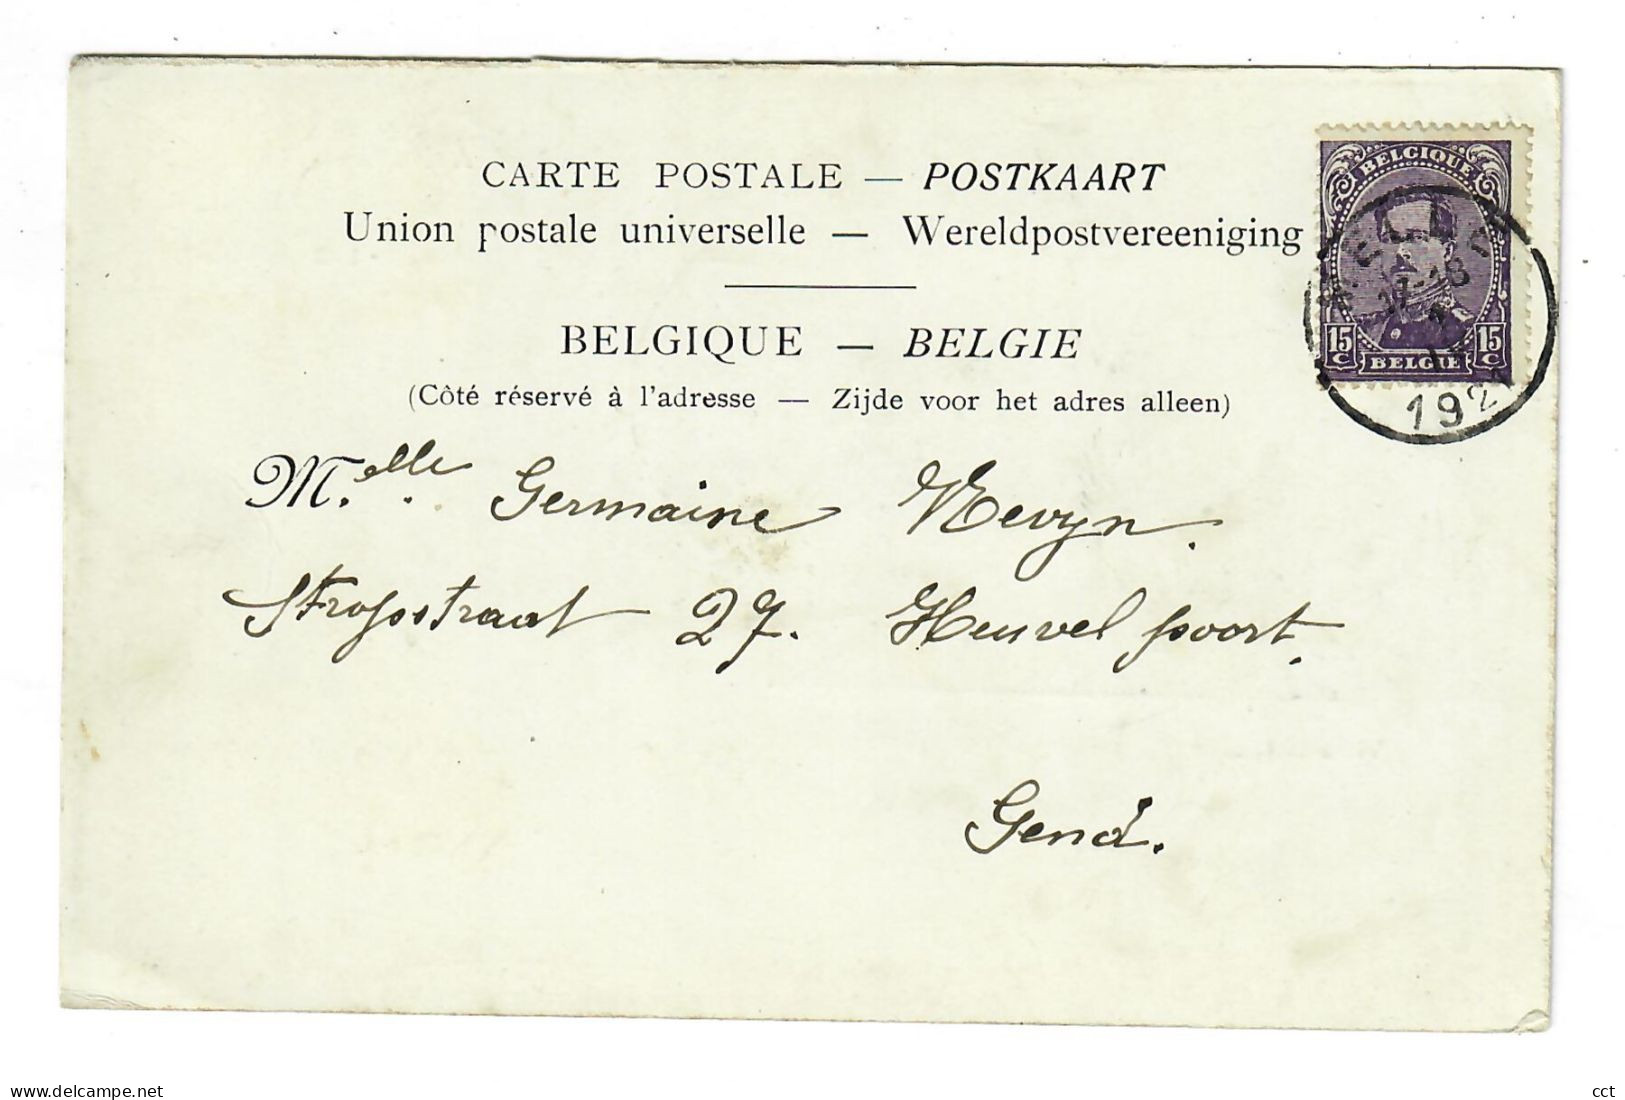 CARTE POSTALE — POSTKAART
Union postale universelle — Wereldpostvereeniging
BELGIQUE — BELGIE
(Côté réservé à l'adresse — Zijde voor het adres alleen)
BELGIQUE
MELLE
17-18
15 C BELGIE 15 C
192
M.elle Germaine
Stropstraat 27. Heuvelpoort.
Gend.
delcampe.net
cct